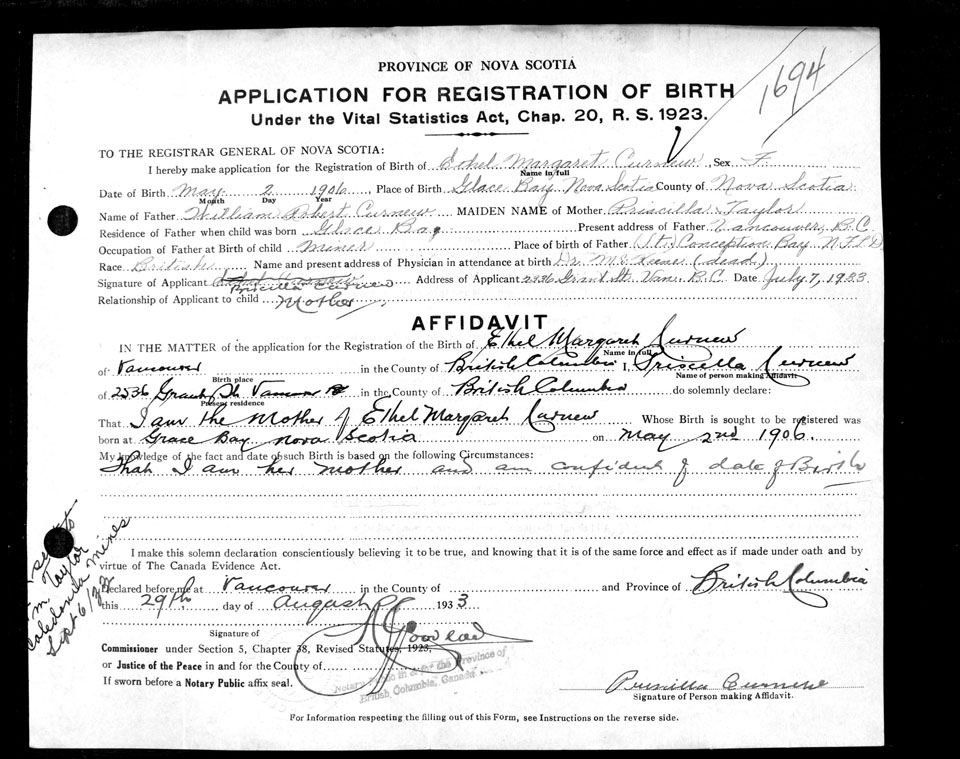 1694
PROVINCE OF NOVA SCOTIA
APPLICATION FOR REGISTRATION OF BIRTH
Under the Vital Statistics Act, Chap. 20, R. S. 1923.
TO THE REGISTRAR GENERAL OF NOVA SCOTIA:
I hereby make application for the Registration of Birth of Ethel Margaret Curnew, Sex F.
Name in full
Date of Birth May 2 1906, Place of Birth Glace Bay Nova Scotia County of Nova Scotia
Month Day Year
Name of Father William Robert Curnew MAIDEN NAME of Mother Priscilla Taylor
Residence of Father when child was born Glace Bay Present address of Father Vancouver, B.C.
Occupation of Father at Birth of child Miner Place of birth of Father Conception Bay NFLD
Race British Name and present address of Physician in attendance at birth Dr. (dead)
Signature of Applicant Priscilla Curnew Address of Applicant 2536 Grant St. Van. B.C. Date July 7, 1933
Relationship of Applicant to child Mother
AFFIDAVIT
IN THE MATTER of the application for the Registration of the Birth of Ethel Margaret Curnew
Name in full
of Vancouver in the County of British Columbia I, Priscilla Curnew
Birth place Name of person making Affidavit.
of 2536 Grant St Vancouver in the County of British Columbia do solemnly declare:
Present residence
That I am the Mother of Ethel Margaret Curnew Whose Birth is sought to be registered was
born at Grace Bay Nova Scotia on May 2nd 1906.
My knowledge of the fact and date of such Birth is based on the following Circumstances:
That I am her mother and am confident of date of Birth
I make this solemn declaration conscientiously believing it to be true, and knowing that it is of the same force and effect as if made under oath and by
virtue of The Canada Evidence Act.
Declared before me at Vancouver in the County of and Province of British Columbia
this 29th day of August 1933
Signature of
Commissioner under Section 5, Chapter 38, Revised Statutes, 1923,
or Justice of the Peace in and for the County of
If sworn before a Notary Public affix seal.
Notary Public in and for the Province of
British Columbia, Canada
Priscilla Curnew
Signature of Person making Affidavit.
For Information respecting the filling out of this Form, see Instructions on the reverse side.
to
Taylor
Caledonia Mines
Sept 6/33